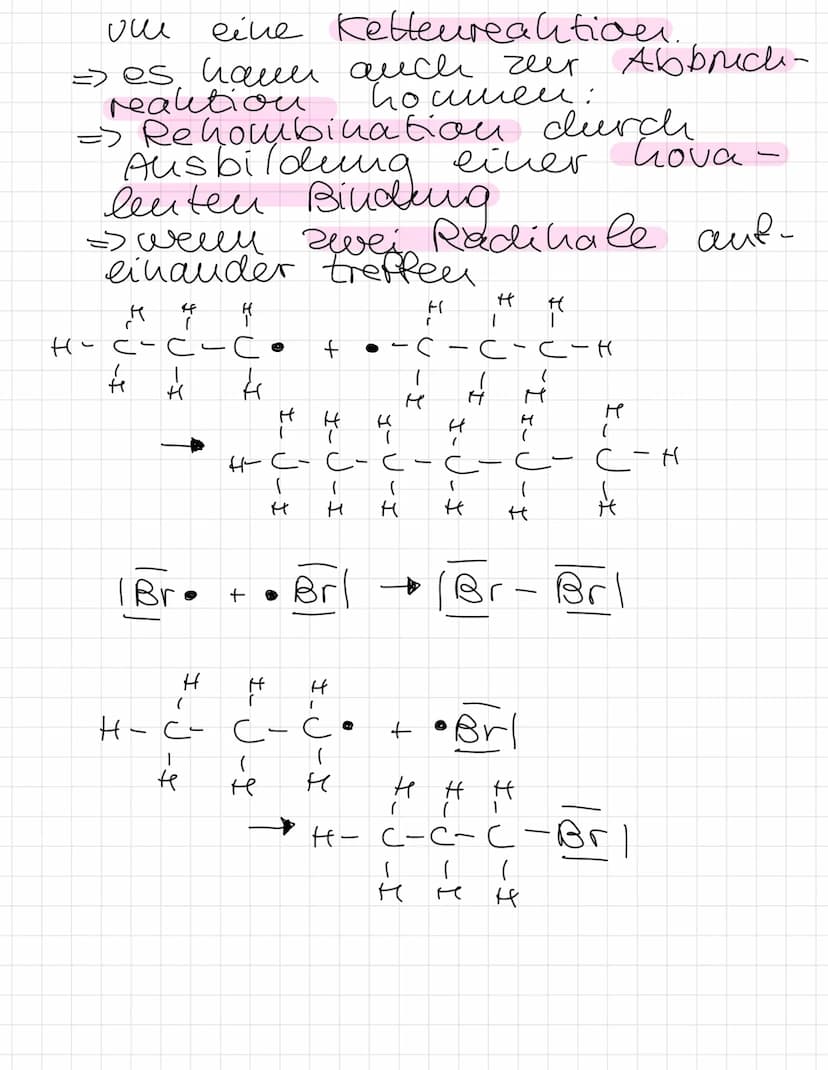 um eine Kettenreaktion.
=> es kann auch zur Abbruch-
reaktion kommen:
=> Rekombination durch
Ausbildung einer kova-
lenten Bindung
=> wenn zwei Radikale auf-
einander treffen
H H H H H H
H - C - C - C • + • - C - C - C - H
H H H H H H
H H H H H H
→ H - C - C - C - C - C - C - H
H H H H H H
|Br • + • Br| → |Br - Br|
H H H
H - C - C - C • + • Br|
H H H
H H H
→ H - C - C - C - Br|
H H H